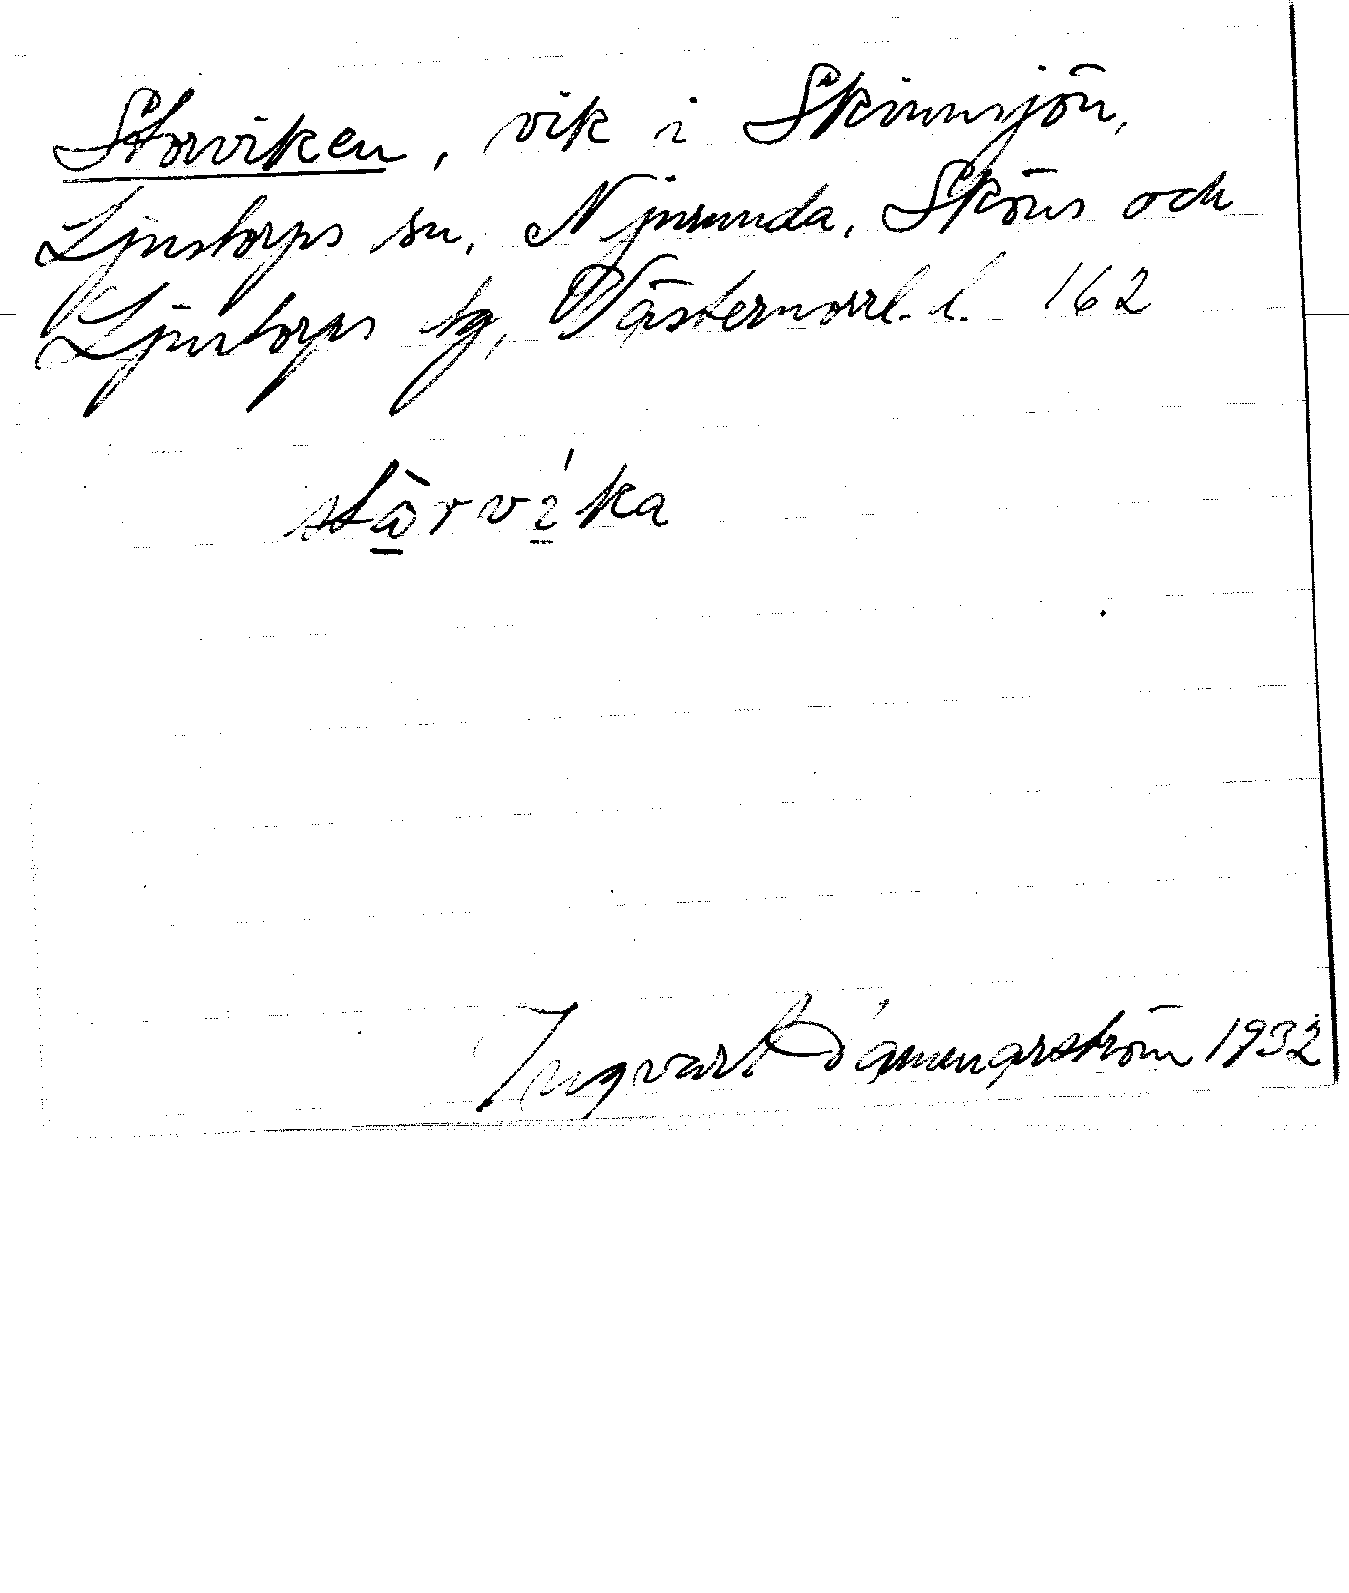 Storviken, vik i Skinnsjön,
Ljustorps sn, Njurunda, Sköns och
Ljustorps tg, Västernorrl. l. 162
stὼ̲rví̲ka
Ingvart Dämmarström 1932